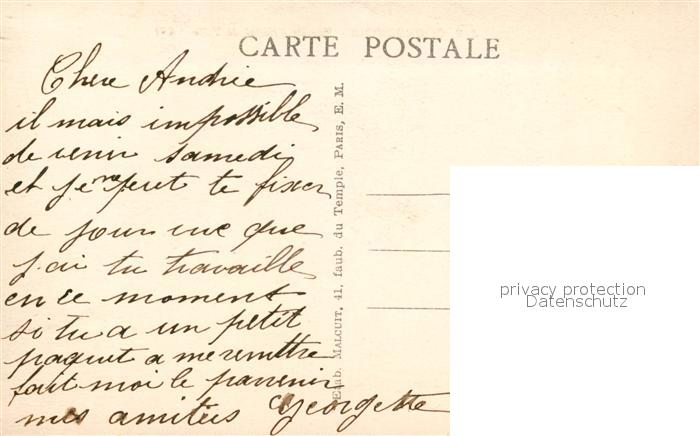 CARTE POSTALE
Chere Andrée
il mais impossible
de venir samedi
et je ne peut te fixer
de jour vue que
j'ai tu travaille
en ce moment
si tu a un petit
paquet a me remettre
fait moi le parvenir
mes amitiés Georgette
Étab. MALCUIT, 41, faub. du Temple, PARIS, E. M.
privacy protection
Datenschutz